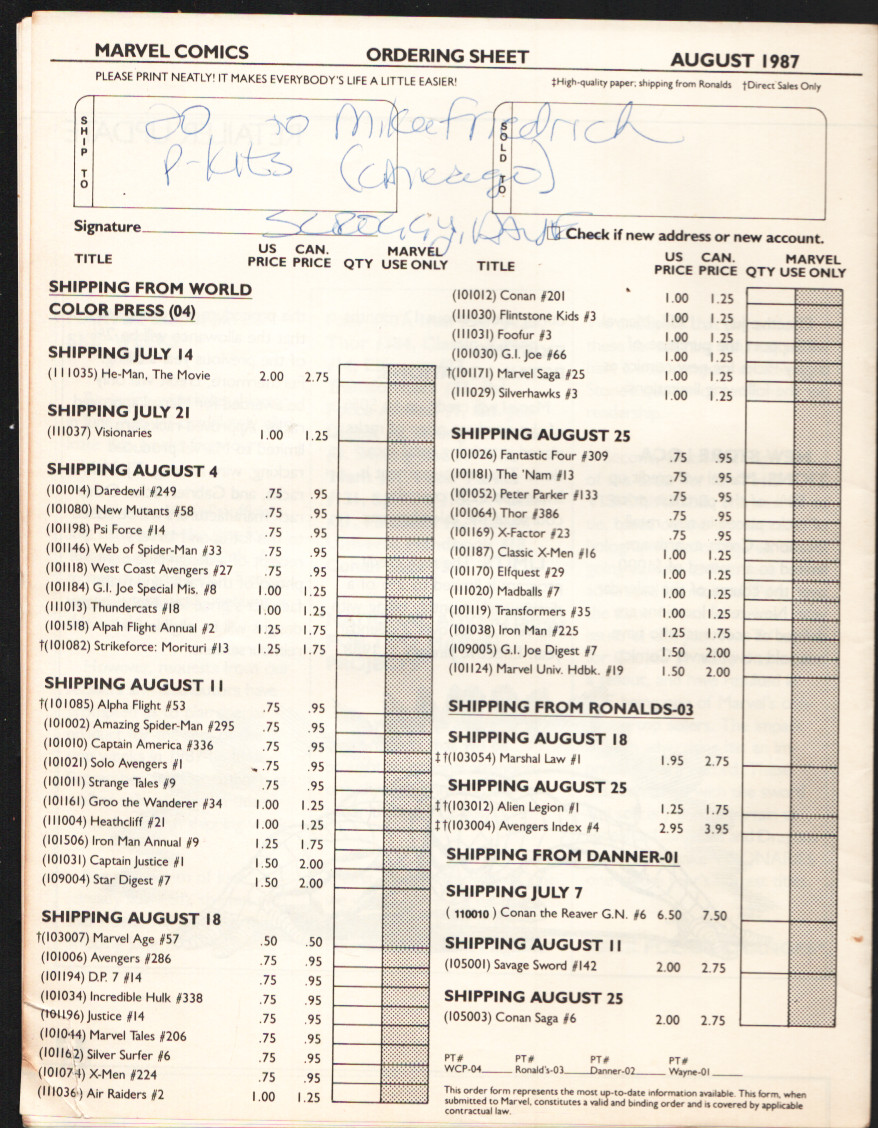 MARVEL COMICS ORDERING SHEET AUGUST 1987
PLEASE PRINT NEATLY! IT MAKES EVERYBODY'S LIFE A LITTLE EASIER! ‡High-quality paper; shipping from Ronalds †Direct Sales Only
SHIP TO
20 to Mike Friedrich
P-Kits (Chicago)
SOLD TO
Signature
Check if new address or new account.
TITLE US PRICE CAN. PRICE QTY MARVEL USE ONLY
SHIPPING FROM WORLD
COLOR PRESS (04)
SHIPPING JULY 14
(111035) He-Man, The Movie 2.00 2.75
SHIPPING JULY 21
(111037) Visionaries 1.00 1.25
SHIPPING AUGUST 4
(101014) Daredevil #249 .75 .95
(101080) New Mutants #58 .75 .95
(101198) Psi Force #14 .75 .95
(101146) Web of Spider-Man #33 .75 .95
(101118) West Coast Avengers #27 .75 .95
(101184) G.I. Joe Special Mis. #8 1.00 1.25
(111013) Thundercats #18 1.00 1.25
(101518) Alpah Flight Annual #2 1.25 1.75
†(101082) Strikeforce: Morituri #13 1.25 1.75
SHIPPING AUGUST 11
†(101085) Alpha Flight #53 .75 .95
(101002) Amazing Spider-Man #295 .75 .95
(101010) Captain America #336 .75 .95
(101021) Solo Avengers #1 .75 .95
(101011) Strange Tales #9 .75 .95
(101161) Groo the Wanderer #34 1.00 1.25
(111004) Heathcliff #21 1.00 1.25
(101506) Iron Man Annual #9 1.25 1.75
(101031) Captain Justice #1 1.50 2.00
(109004) Star Digest #7 1.50 2.00
SHIPPING AUGUST 18
†(103007) Marvel Age #57 .50 .50
(101006) Avengers #286 .75 .95
(101194) D.P. 7 #14 .75 .95
(101034) Incredible Hulk #338 .75 .95
(101196) Justice #14 .75 .95
(101044) Marvel Tales #206 .75 .95
(101162) Silver Surfer #6 .75 .95
(101074) X-Men #224 .75 .95
(111036) Air Raiders #2 1.00 1.25
TITLE US PRICE CAN. PRICE QTY MARVEL USE ONLY
(101012) Conan #201 1.00 1.25
(111030) Flintstone Kids #3 1.00 1.25
(111031) Foofur #3 1.00 1.25
(101030) G.I. Joe #66 1.00 1.25
†(101171) Marvel Saga #25 1.00 1.25
(111029) Silverhawks #3 1.00 1.25
SHIPPING AUGUST 25
(101026) Fantastic Four #309 .75 .95
(101181) The 'Nam #13 .75 .95
(101052) Peter Parker #133 .75 .95
(101064) Thor #386 .75 .95
(101169) X-Factor #23 .75 .95
(101187) Classic X-Men #16 1.00 1.25
(101170) Elfquest #29 1.00 1.25
(111020) Madballs #7 1.00 1.25
(101119) Transformers #35 1.00 1.25
(101038) Iron Man #225 1.25 1.75
(109005) G.I. Joe Digest #7 1.50 2.00
(101124) Marvel Univ. Hdbk. #19 1.50 2.00
SHIPPING FROM RONALDS-03
SHIPPING AUGUST 18
‡†(103054) Marshal Law #1 1.95 2.75
SHIPPING AUGUST 25
‡†(103012) Alien Legion #1 1.25 1.75
‡†(103004) Avengers Index #4 2.95 3.95
SHIPPING FROM DANNER-01
SHIPPING JULY 7
( 110010 ) Conan the Reaver G.N. #6 6.50 7.50
SHIPPING AUGUST 11
(105001) Savage Sword #142 2.00 2.75
SHIPPING AUGUST 25
(105003) Conan Saga #6 2.00 2.75
PT# PT# PT# PT#
WCP-04 Ronald's-03 Danner-02 Wayne-01
This order form represents the most up-to-date information available. This form, when
submitted to Marvel, constitutes a valid and binding order and is covered by applicable
contractual law.